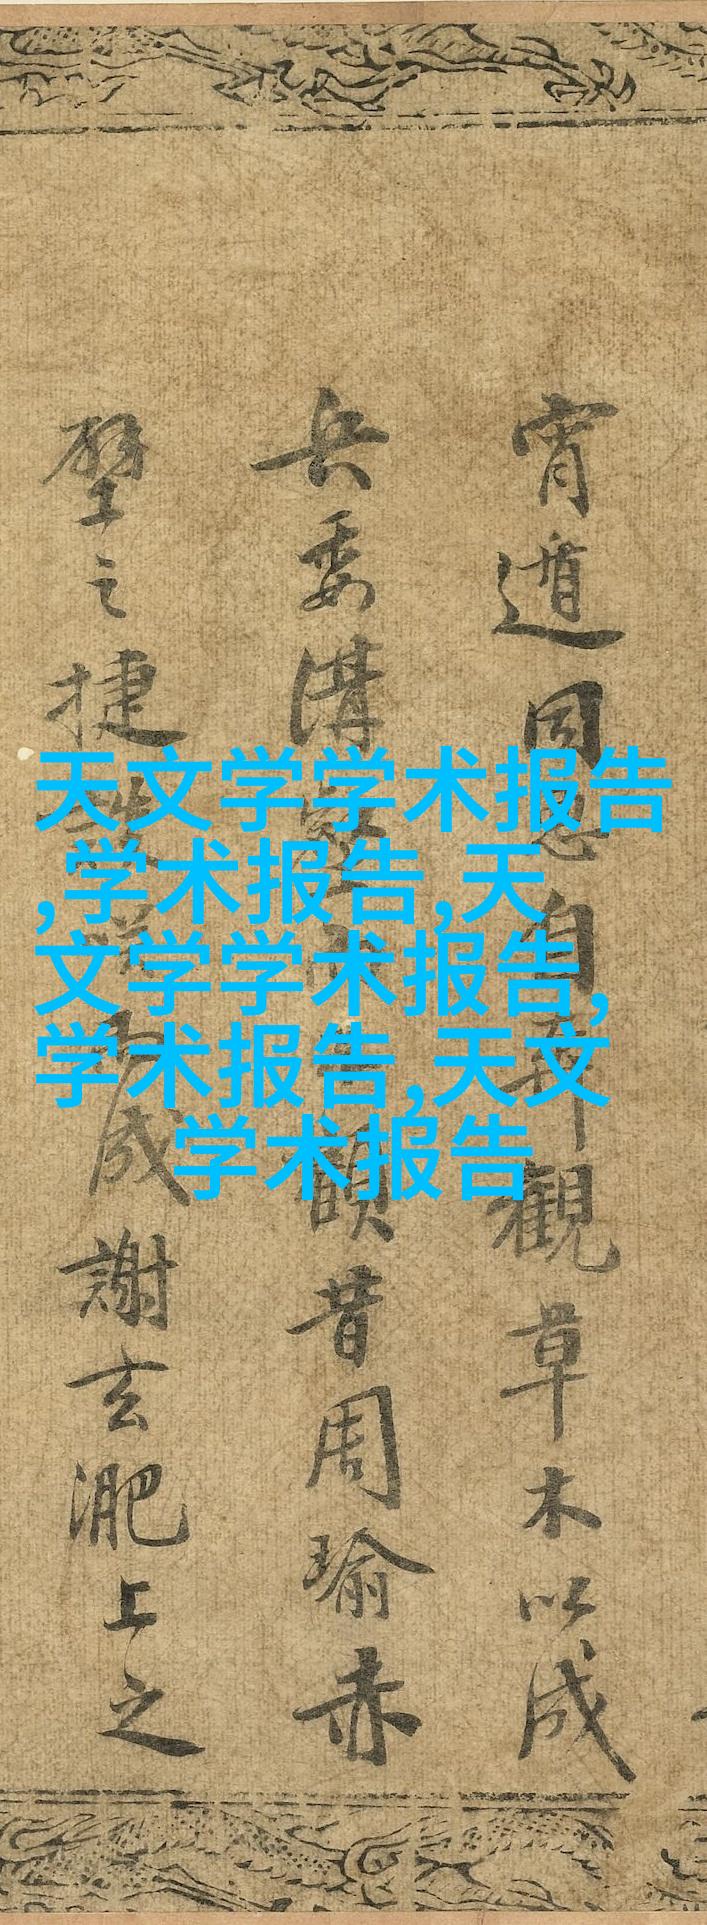 宵遁自觀草木以成
兵委溝壑昔周瑜赤
壁之捷成謝玄淝上之
天文学学术报告
,学术报告,天
文学学术报告,
学术报告,天文
学术报告